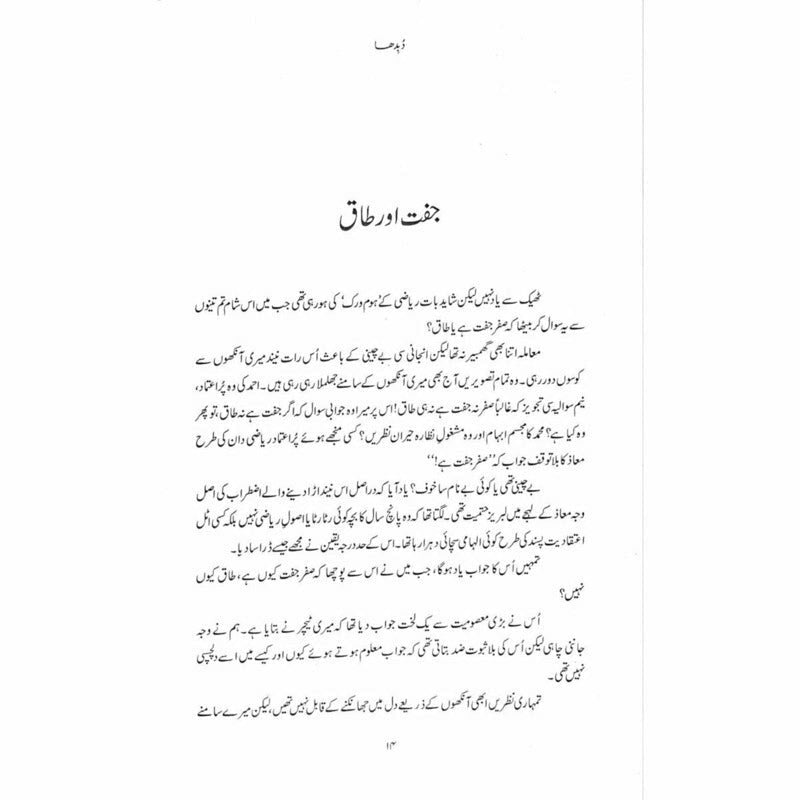 دُبدھا
جفت اور طاق
ٹھیک سے یاد نہیں لیکن شاید بات ریاضی کے 'ہوم ورک' کی ہو رہی تھی جب میں اس شام تم تینوں
سے یہ سوال کر بیٹھا کہ صفر جفت ہے یا طاق؟
معاملہ اتنا بھی گھمبیر نہ تھا لیکن انجانی سی بے چینی کے باعث اُس رات نیند میری آنکھوں سے
کوسوں دور رہی۔ وہ تمام تصویریں آج بھی میری آنکھوں کے سامنے جھلملا رہی رہی ہیں۔ احمد کی وہ پُر اعتماد،
نیم سوالیہ سی تجویز کہ غالباً صفر نہ جفت ہے نہ ہی طاق! اس پر میرا وہ جوابی سوال کہ اگر جفت ہے نہ طاق، تو پھر
وہ کیا ہے؟ محمد کا مجسم ابہام اور وہ مشغولِ نظارہ حیران نظریں؟ کسی منجھے ہوئے پُر اعتماد ریاضی دان کی طرح
معاذ کا بلا توقف جواب کہ "صفر جفت ہے!"
بے چینی تھی یا کوئی بے نام سا خوف؟ یاد آیا کہ دراصل اس نیند اڑا دینے والے اضطراب کی اصل
وجہ معاذ کے لہجے میں لبریز حتمیت تھی۔ لگتا تھا کہ وہ پانچ سال کا بچہ کوئی رٹا رٹایا اصولِ ریاضی نہیں بلکہ کسی اٹل
اعتقادیت پسند کی طرح کوئی الہامی سچائی دہرا رہا تھا۔ اس کے حد درجہ یقین نے مجھے جیسے ڈرا سا دیا۔
تمہیں اُس کا جواب یاد ہوگا، جب میں نے اس سے پوچھا کہ صفر جفت کیوں ہے، طاق کیوں
نہیں؟
اُس نے بڑی معصومیت سے یک لخت جواب دیا تھا کہ میری ٹیچر نے بتایا ہے۔ ہم نے وجہ
جاننی چاہی لیکن اُس کی بلا ثبوت ضد بتاتی تھی کہ جواب معلوم ہوتے ہوئے کیوں اور کیسے میں اسے دلچسپی
نہیں تھی۔
تمہاری نظریں ابھی آنکھوں کے ذریعے دل میں جھانکنے کے قابل نہیں تھیں، لیکن میرے سامنے
۱۴